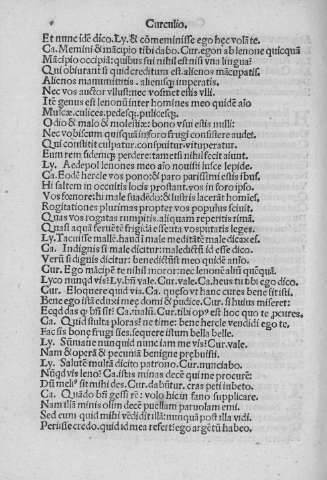 Curculio.
Et nunc idē dico. Ly. & cōmeminisse ego hęc volā te.
Ca. Memini & mācipio tibi dabo. Cur. egon ab lenone quicquā
Mācipio occipiā: quibus sui nihil est nisi vna lingua?
Qui obiurant si quid creditum est. alienos mācupatis.
Alienos manumittitis. alienisq; imperatis.
Nec vos auctor vllust: nec vosmet estis vlli.
Itē genus est lenonū inter homines meo quidē aīo
Muscæ. culices. pedesq;. pulicesq;.
Odio & malo & molestiæ: bono vsui estis nulli:
Nec vobiscum quisquā in foro frugi consistere audet.
Qui constitit culpatur. conspuitur. vituperatur.
Eum rem fidemq; perdere: tametsi nihil fecit aiunt.
Ly. Aedepol lenones meo aīo nouisti lusce lepide.
Ca. Eodē hercle vos pono: & paro parissimi estis ibus.
Hi saltem in occultis locis prostant. vos in foro ipso.
Vos fœnore: hi male suadēdo: & lustris lacerāt homies,
Rogitationes plurimas propter vos populus sciuit.
Quas vos rogatas rumpitis. aliquam repetitis rimā.
Quasi aquā feruētē frigidā esse ita vosputatis leges.
Ly. Tacuisse mallē. haud male meditatē male dicax es.
Ca. Indictū si male dicitur: maledictū id esse dico.
Verū si dignis dicitur: benedictūst meo quidē animo.
Cur. Ego mācipē te nihil moror: nec lenonē aliū quēquā.
Lyco nunqd vis? Ly. bn̄ vale. Cur. vale. Ca. heus tu tibi ego dico.
Cur. Eloquere quid vis. Ca. quęso vt hanc cures bene sit isti.
Bene ego istā eduxi meę domi & pudice. Cur. si huius miseret:
Ecqd das qͥ bn̄ sit? Ca. malū. Cur. tibi opꝰ est hoc quo te ꝓcures.
Ca. Quid stulta ploras? ne time: bene hercle vendidi ego te.
Fac sis bonę frugi sies. sequere istum bella belle.
Ly. Sūmane nunquid nunc iam me vis? Cur. vale.
Nam & operā & pecuniā benigne prebuisti.
Ly. Salutē multā dicito patrono. Cur. nunciabo.
Nūqd vis leno? Ca. istas minas decē qui me procurē:
Dū melꝰ sit mihi des. Cur. dabūtur. cras peti iubeto.
Ca. Quādo bn̄ gessi rē: volo hic in fano supplicare.
Nam illā minis olim decē puellam paruolam emi.
Sed eum qui mihi vēdidit illā: nunquā post illa vidi.
Periisse credo. quid id mea refert: ego argētū habeo.